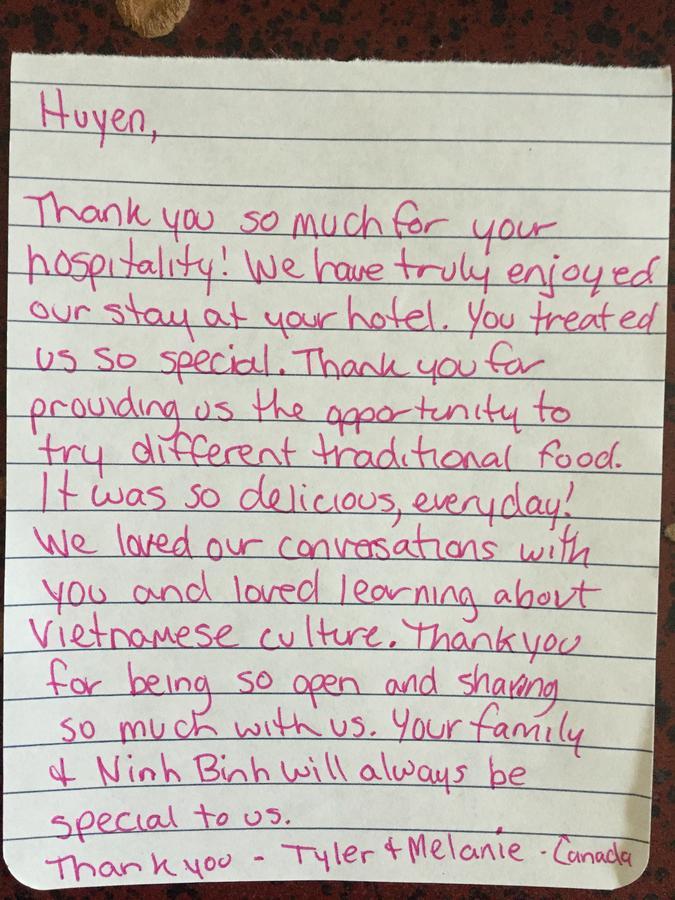 Huyen,
Thank you so much for your
hospitality! We have truly enjoyed
our stay at your hotel. You treated
us so special. Thank you for
providing us the opportunity to
try different traditional food.
It was so delicious, everyday!
We loved our conversations with
you and loved learning about
Vietnamese culture. Thank you
for being so open and sharing
so much with us. Your family
& Ninh Binh will always be
special to us.
Thank you - Tyler & Melanie - Canada